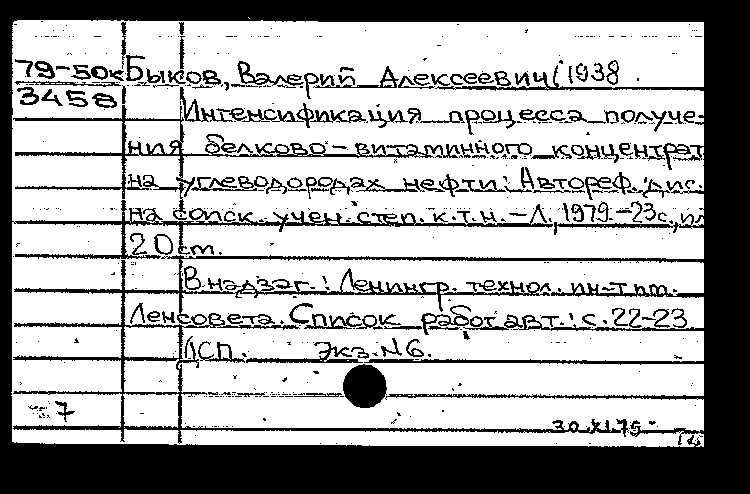 79-50к Быков, Валерий Алексеевич (1938
3458
Интенсификация процесса получе-
ния белково-витаминного концентрат
на углеводородах нефти: Автореф. дис.
на соиск. учен. степ. к.т.н. - Л., 1979. - 23с., ил
20 см.
В надзаг.: Ленингр. технол. ин-т им.
Ленсовета. Список работ авт.: с. 22-23
ДСП. Экз. N6.
- 7
30.XI.79